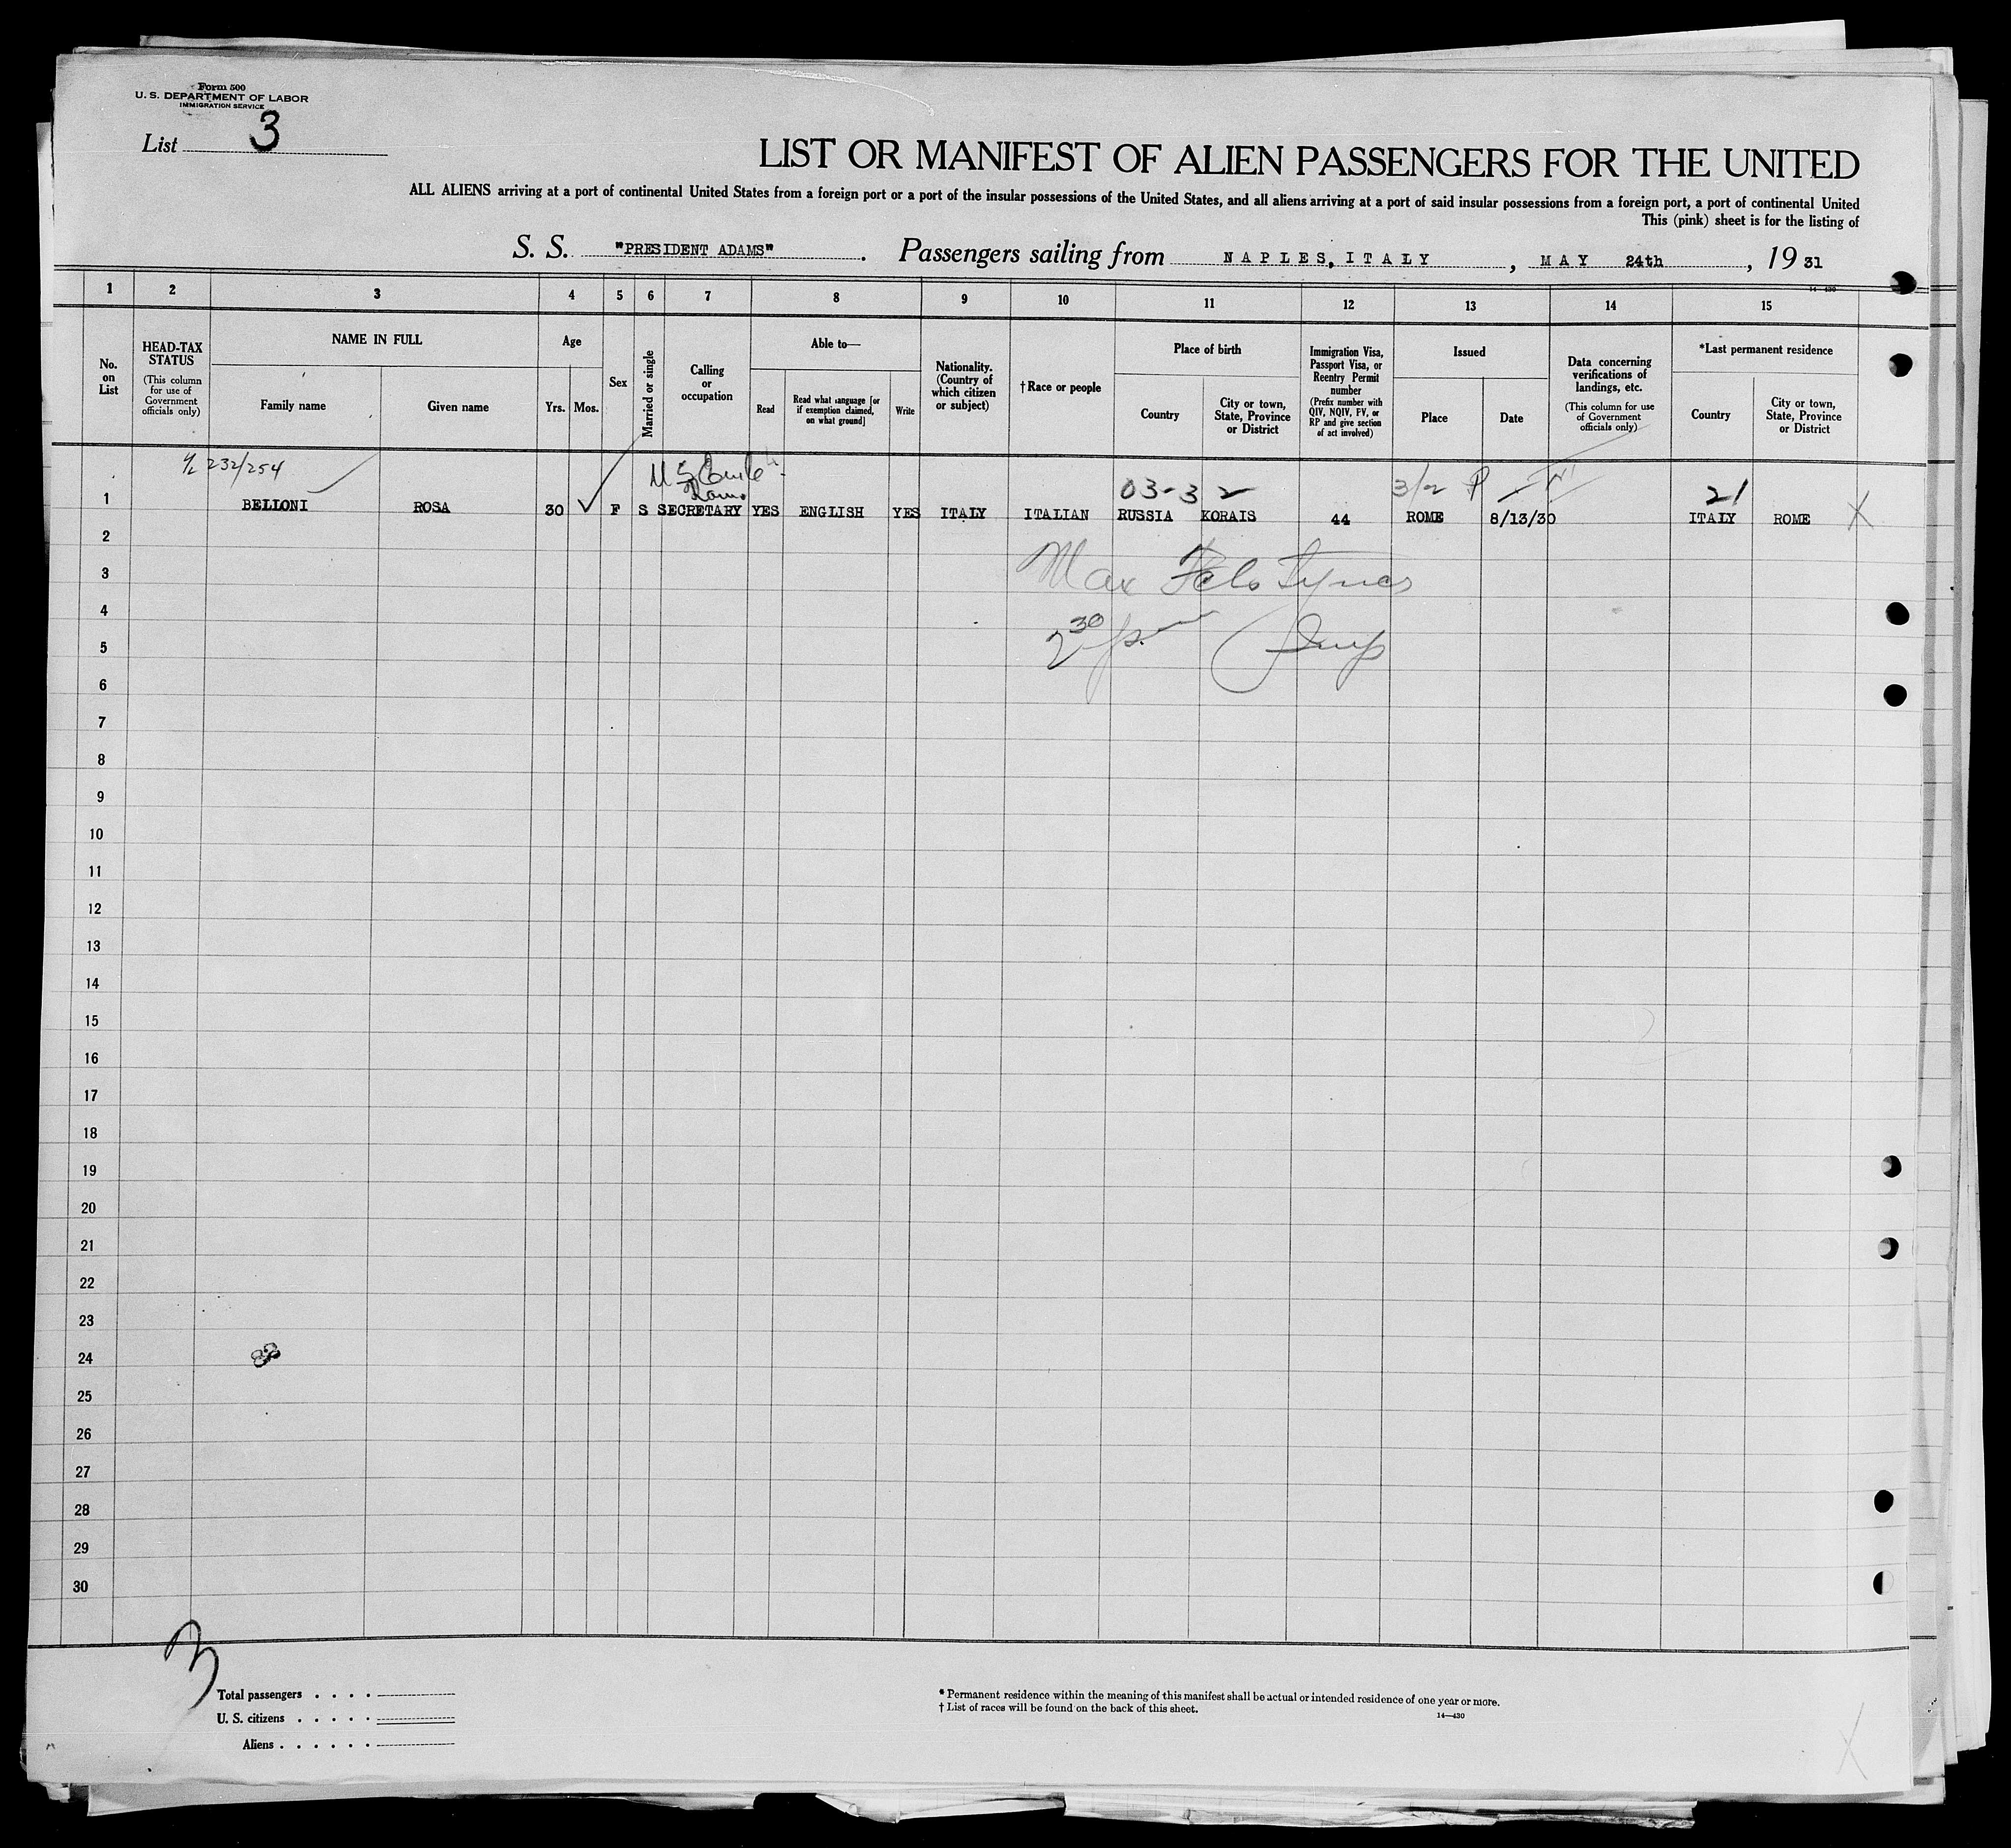 Form 500
U. S. DEPARTMENT OF LABOR
IMMIGRATION SERVICE
List 3
LIST OR MANIFEST OF ALIEN PASSENGERS FOR THE UNITED
ALL ALIENS arriving at a port of continental United States from a foreign port or a port of the insular possessions of the United States, and all aliens arriving at a port of said insular possessions from a foreign port, a port of continental United
This (pink) sheet is for the listing of
S. S. "PRESIDENT ADAMS". Passengers sailing from NAPLES, ITALY, MAY 24th, 1931
14-430
1 2 3 4 5 6 7 8 9 10 11 12 13 14 15
No. on List
HEAD-TAX STATUS
(This column for use of Government officials only)
NAME IN FULL
Family name
Given name
Age
Yrs.
Mos.
Sex
Married or single
Calling or occupation
Able to—
Read
Read what language [or if exemption claimed, on what ground]
Write
Nationality. (Country of which citizen or subject)
†Race or people
Place of birth
Country
City or town, State, Province or District
Immigration Visa, Passport Visa, or Reentry Permit number
(Prefix number with QIV, NQIV, FV, or RP and give section of act involved)
Issued
Place
Date
Data concerning verifications of landings, etc.
(This column for use of Government officials only)
*Last permanent residence
Country
City or town, State, Province or District
232/254
03-3 2
3/2 P
21
1 BELLONI ROSA 30 F S SECRETARY YES ENGLISH YES ITALY ITALIAN RUSSIA KORAIS 44 ROME 8/13/30 ITALY ROME X
2
3
Max
4
2 30
5
6
7
8
9
10
11
12
13
14
15
16
17
18
19
20
21
22
23
24
25
26
27
28
29
30
3
Total passengers
U. S. citizens
Aliens
* Permanent residence within the meaning of this manifest shall be actual or intended residence of one year or more.
† List of races will be found on the back of this sheet.
14—430
X